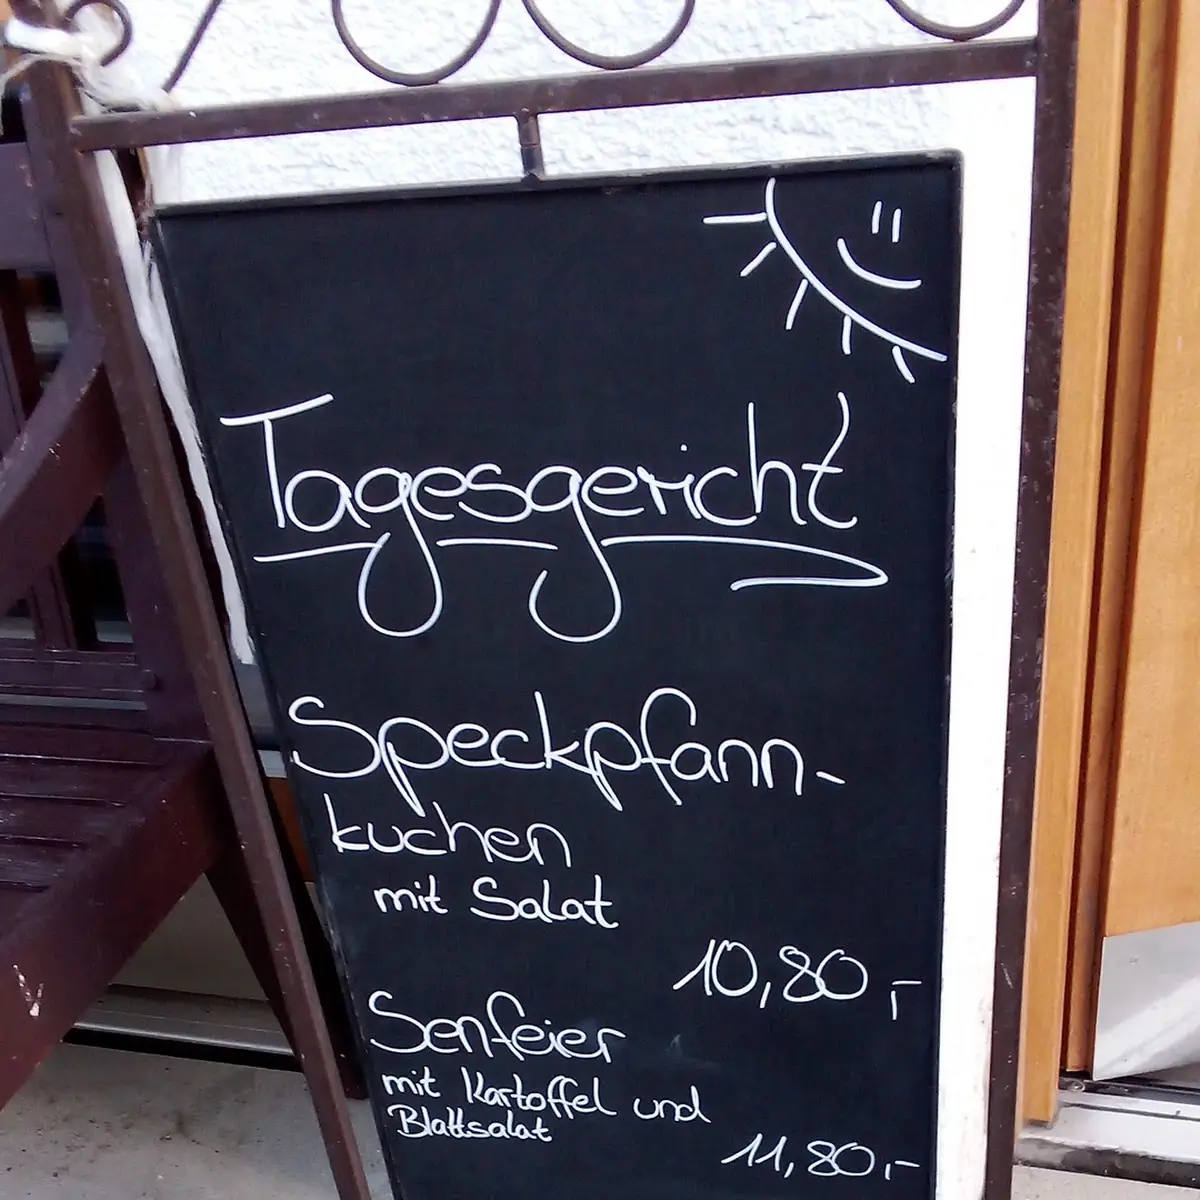 Tagesgericht
Speckpfann-
kuchen
mit Salat
10,80,-
Senfeier
mit Kartoffel und
Blattsalat
11,80,-